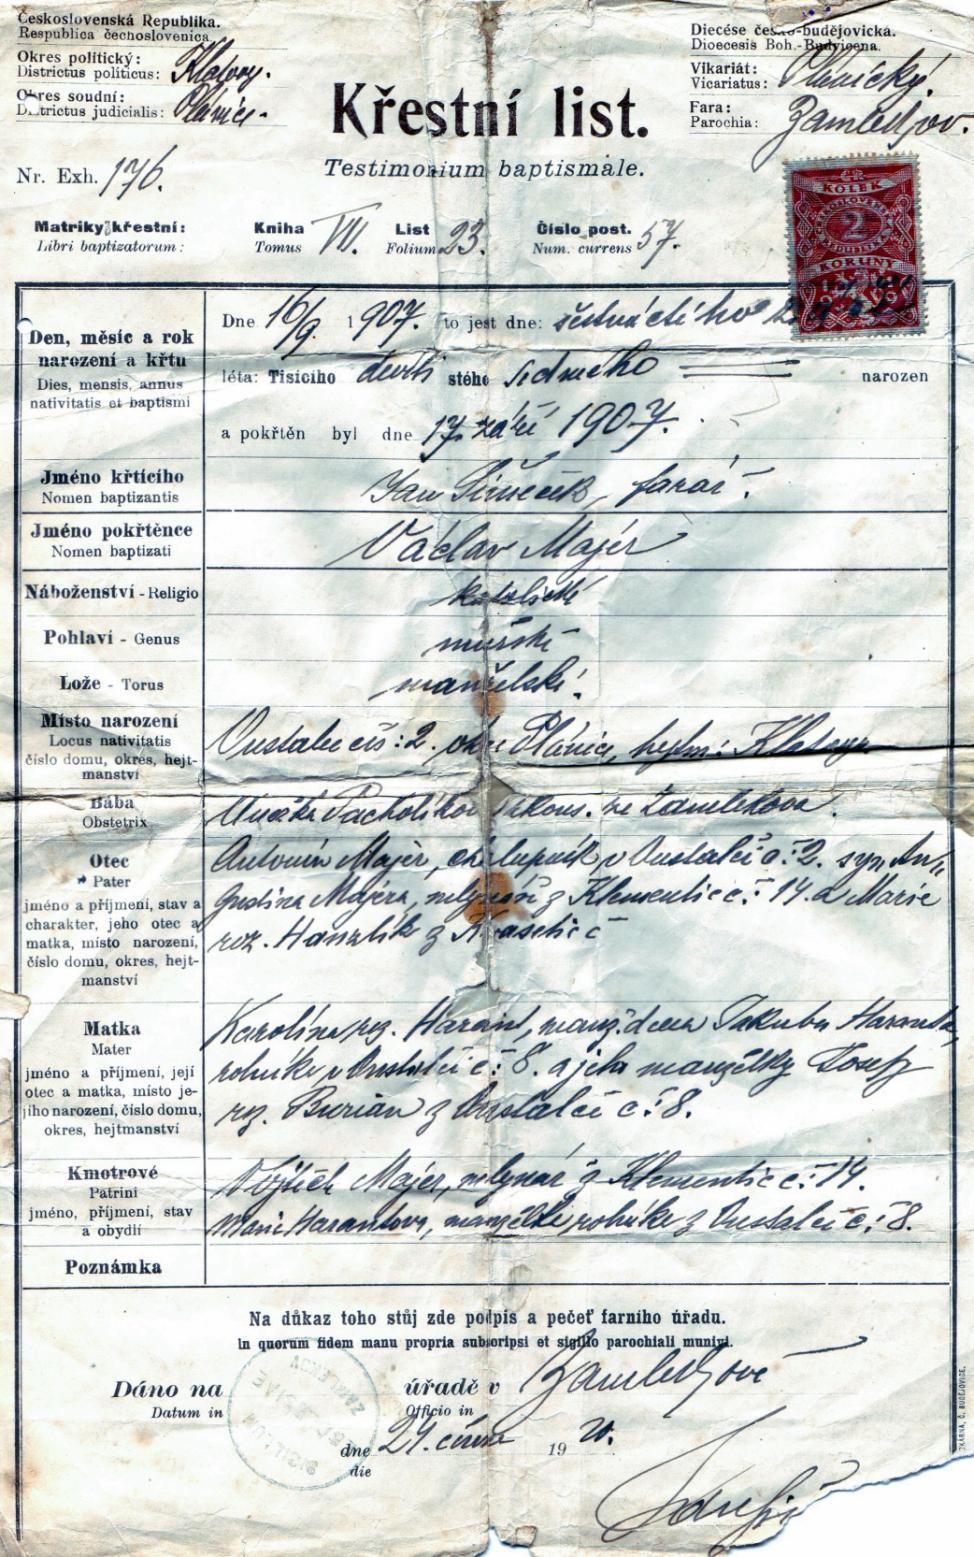 Československá Republika.
Respublica čechoslovenica
Okres politický:
Districtus politicus: Klatovy.
Okres soudní:
Districtus judicialis: Plánice.
Diecése česko-budějovická.
Dioecesis Boh.-Budvicena.
Vikariát:
Vicariatus: Plánický.
Fara:
Parochia: Zamlekov.
Křestní list.
Testimonium baptismale.
Nr. Exh. 176.
KOLEK
2
KORUNY
Matriky křestní: Kniha VII. List 23. Číslo post. 57.
Libri baptizatorum: Tomus Folium Num. currens
Den, měsíc a rok
narození a křtu
Dies, mensis, annus
nativitatis et baptismi
Dne 16/9. 1907. to jest dne: šestnáctého
léta: Tisícího devíti stého sedmého narozen
a pokřtěn byl dne 17. září 1907.
Jméno křtícího
Nomen baptizantis
Jan farář.
Jméno pokřtěnce
Nomen baptizati
Václav Majer
Náboženství - Religio
katolické
Pohlaví - Genus
mužské
Lože - Torus
manželské.
Místo narození
Locus nativitatis
číslo domu, okres, hejt-
manství
čís: 2. okr. Plánice, hejtm: Klatovy
Bába
Obstetrix
ze Zamlekova.
Otec
Pater
jméno a příjmení, stav a
charakter, jeho otec a
matka, místo narození,
číslo domu, okres, hejt-
manství
Antonín Majer, chalupník v č: 2. syn
Majera, z Klementic č: 14. a Marie
roz. Hanzlík z
Matka
Mater
jméno a příjmení, její
otec a matka, místo je-
jího narození, číslo domu,
okres, hejtmanství
Karolína roz. Harant, manž. dcera Jakuba Haranta,
rolníka v č: 8. a jeho manželky Josefy
roz. Burian z č: 8.
Kmotrové
Patrini
jméno, příjmení, stav
a obydlí
Vojtěch Majer, mlynář z Klementic č: 14.
Marie Harantova, manželka rolníka z č: 8.
Poznámka
Na důkaz toho stůj zde podpis a pečeť farního úřadu.
in quorum fidem manu propria subscripsi et sigillo parochiali munivi.
Dáno na úřadě v Zamlekově
Datum in Officio in
dne 24. 19 20.
die